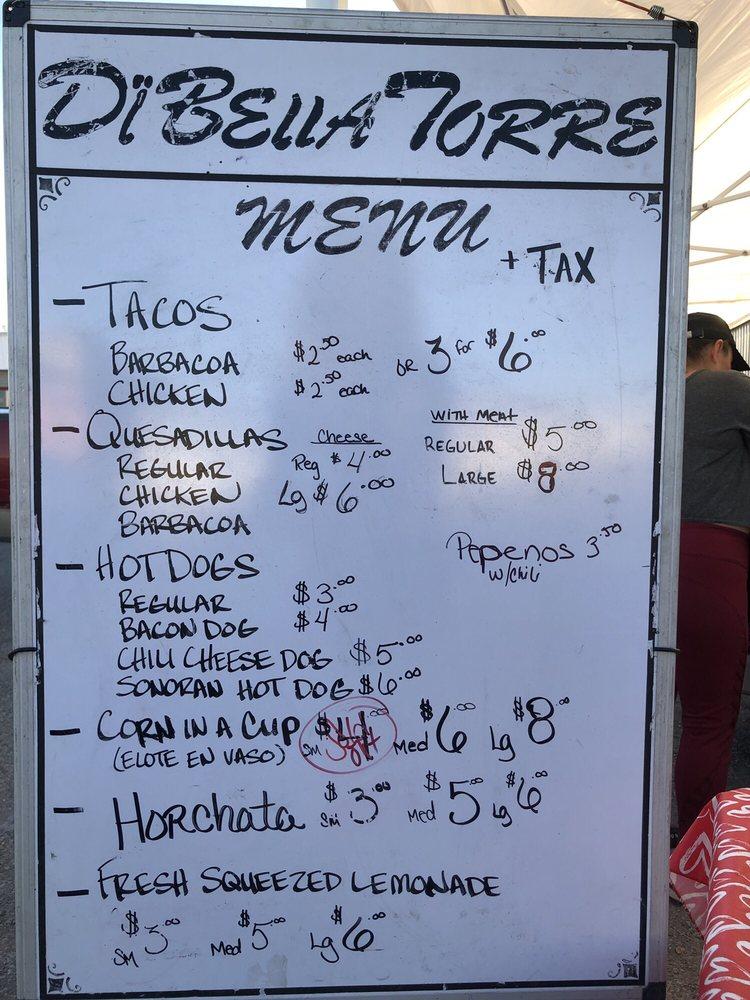 DïBELLA TORRE
MENU
+ TAX
- TACOS
BARBACOA $2.50 each OR 3 for $6.00
CHICKEN $2.50 each
- QUESADILLAS Cheese WITH MEAT
REGULAR Reg $4.00 REGULAR $5.00
CHICKEN Lg $6.00 LARGE $8.00
BARBACOA
- HOTDOGS Pepenos 3.50
w/chili
REGULAR $3.00
BACON DOG $4.00
CHILI CHEESE DOG $5.00
SONORAN HOT DOG $6.00
- CORN IN A CUP $4.00 Med $6.00 Lg $8.00
(ELOTE EN VASO) SM
- HORCHATA Sm $3.00 Med $5.00 Lg $6.00
- FRESH SQUEEZED LEMONADE
SM $3.00 Med $5.00 Lg $6.00